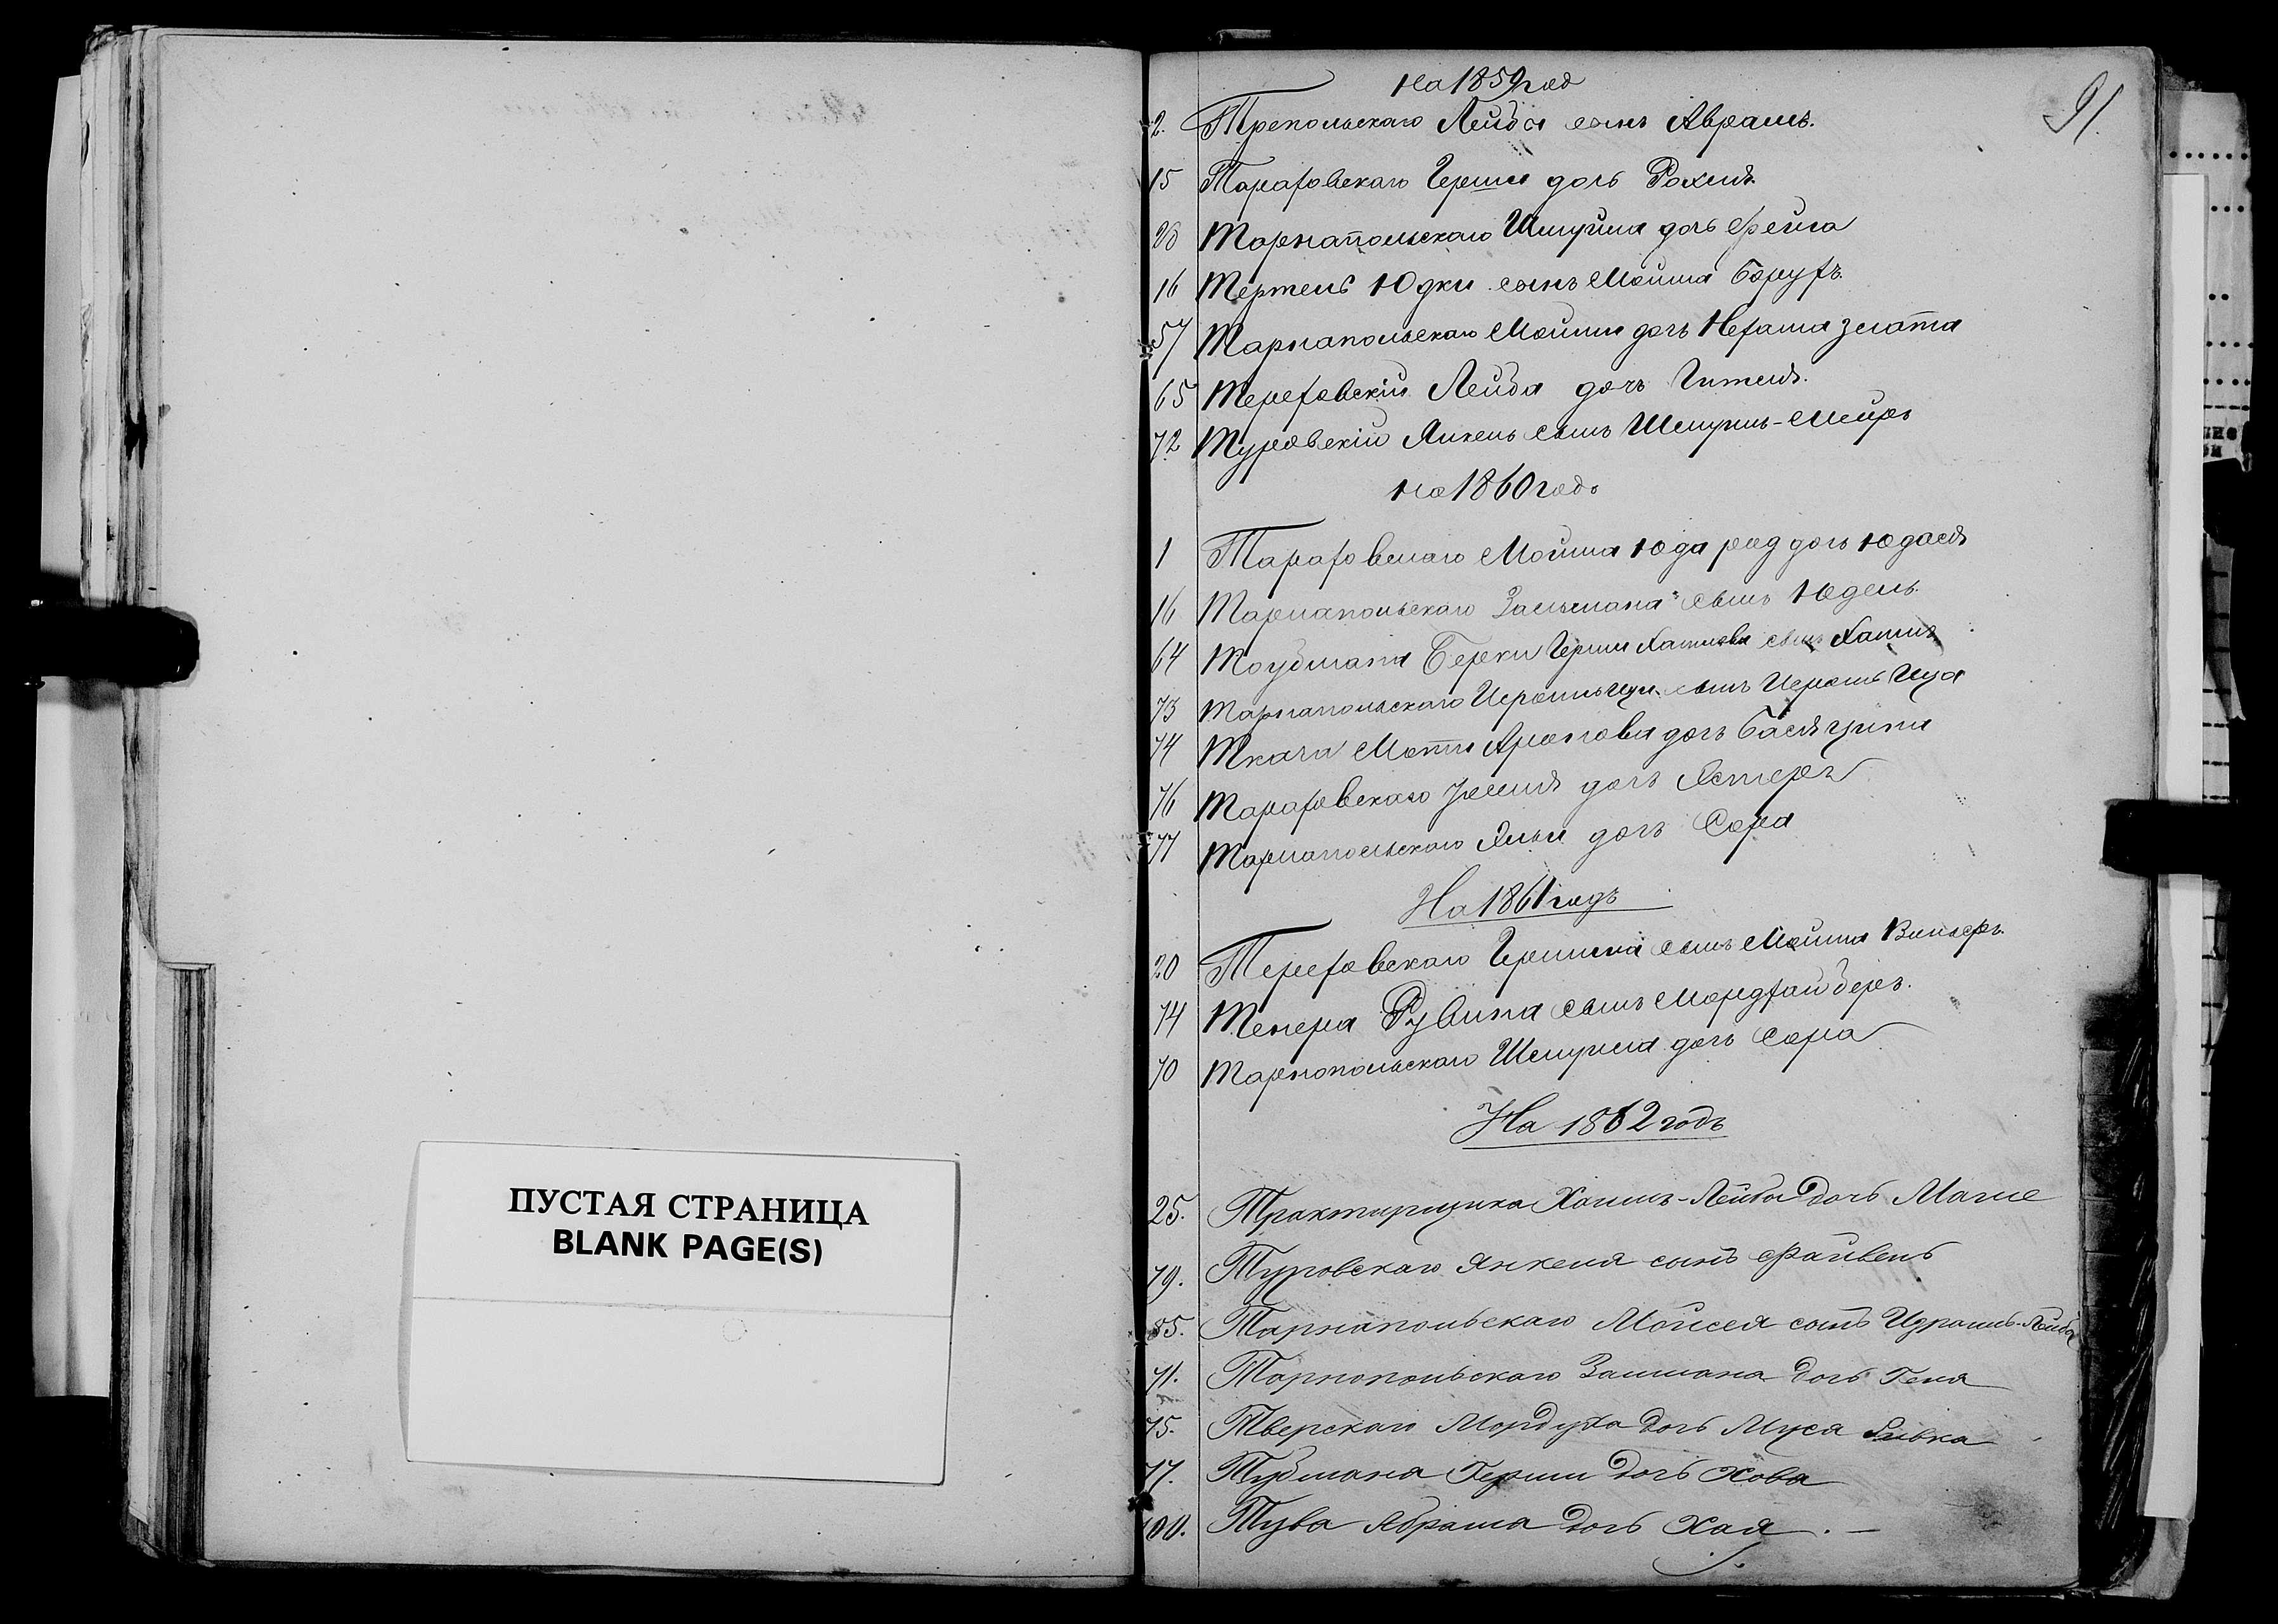 ПУСТАЯ СТРАНИЦА
BLANK PAGE(S)
91.
На 1859 год
2. Трепольскаго Лейбы сынъ Аврамъ.
15 Тараховскаго Герши дочь Рохля.
28 Тарнапольскаго Шмуйла дочь Фейга
16 Мертель Юдки сынъ Мойша Борухъ.
57 Тарнапольскаго Мойши дочь Нехама злата
65 Тереховскій Лейба дочь Гитля.
72 Туровскій Янкель сынъ Шмуль-Мейръ
На 1860 годъ
1 Тараховскаго Мойша Юда дочь Юдася
16 Тарнапольскаго Залмана сынъ Юдель.
64 Тоубмана Берки Герши Хаимова сынъ Хаимъ
73 Тарнапольскаго сынъ
74 Ткача Мотти Аронова дочь Бася ципа
76 Тараховскаго дочь Эстеръ
77 Тарнапольскаго дочь Сора
На 1861 годъ
20 Тереховскаго Гершка сынъ Мойша
14 Тенера Рувина сынъ Мордхай беръ.
70 Тарнопольскаго Шмуля дочь Сора
На 1862 годъ
25. Трактирщика Хаимъ-Лейбы дочь Малие
79. Туровскаго Янкеля сынъ Файвель
85. Тарнапольскаго Мойсея сынъ Израиль-Лейба
71. Тарнопольскаго Залмана дочь Геня
75. Тверскаго Мордуха дочь Муся Ривка
77. Тубмана Герши дочь Хова
100. Тува Абрама дочь Хая. —